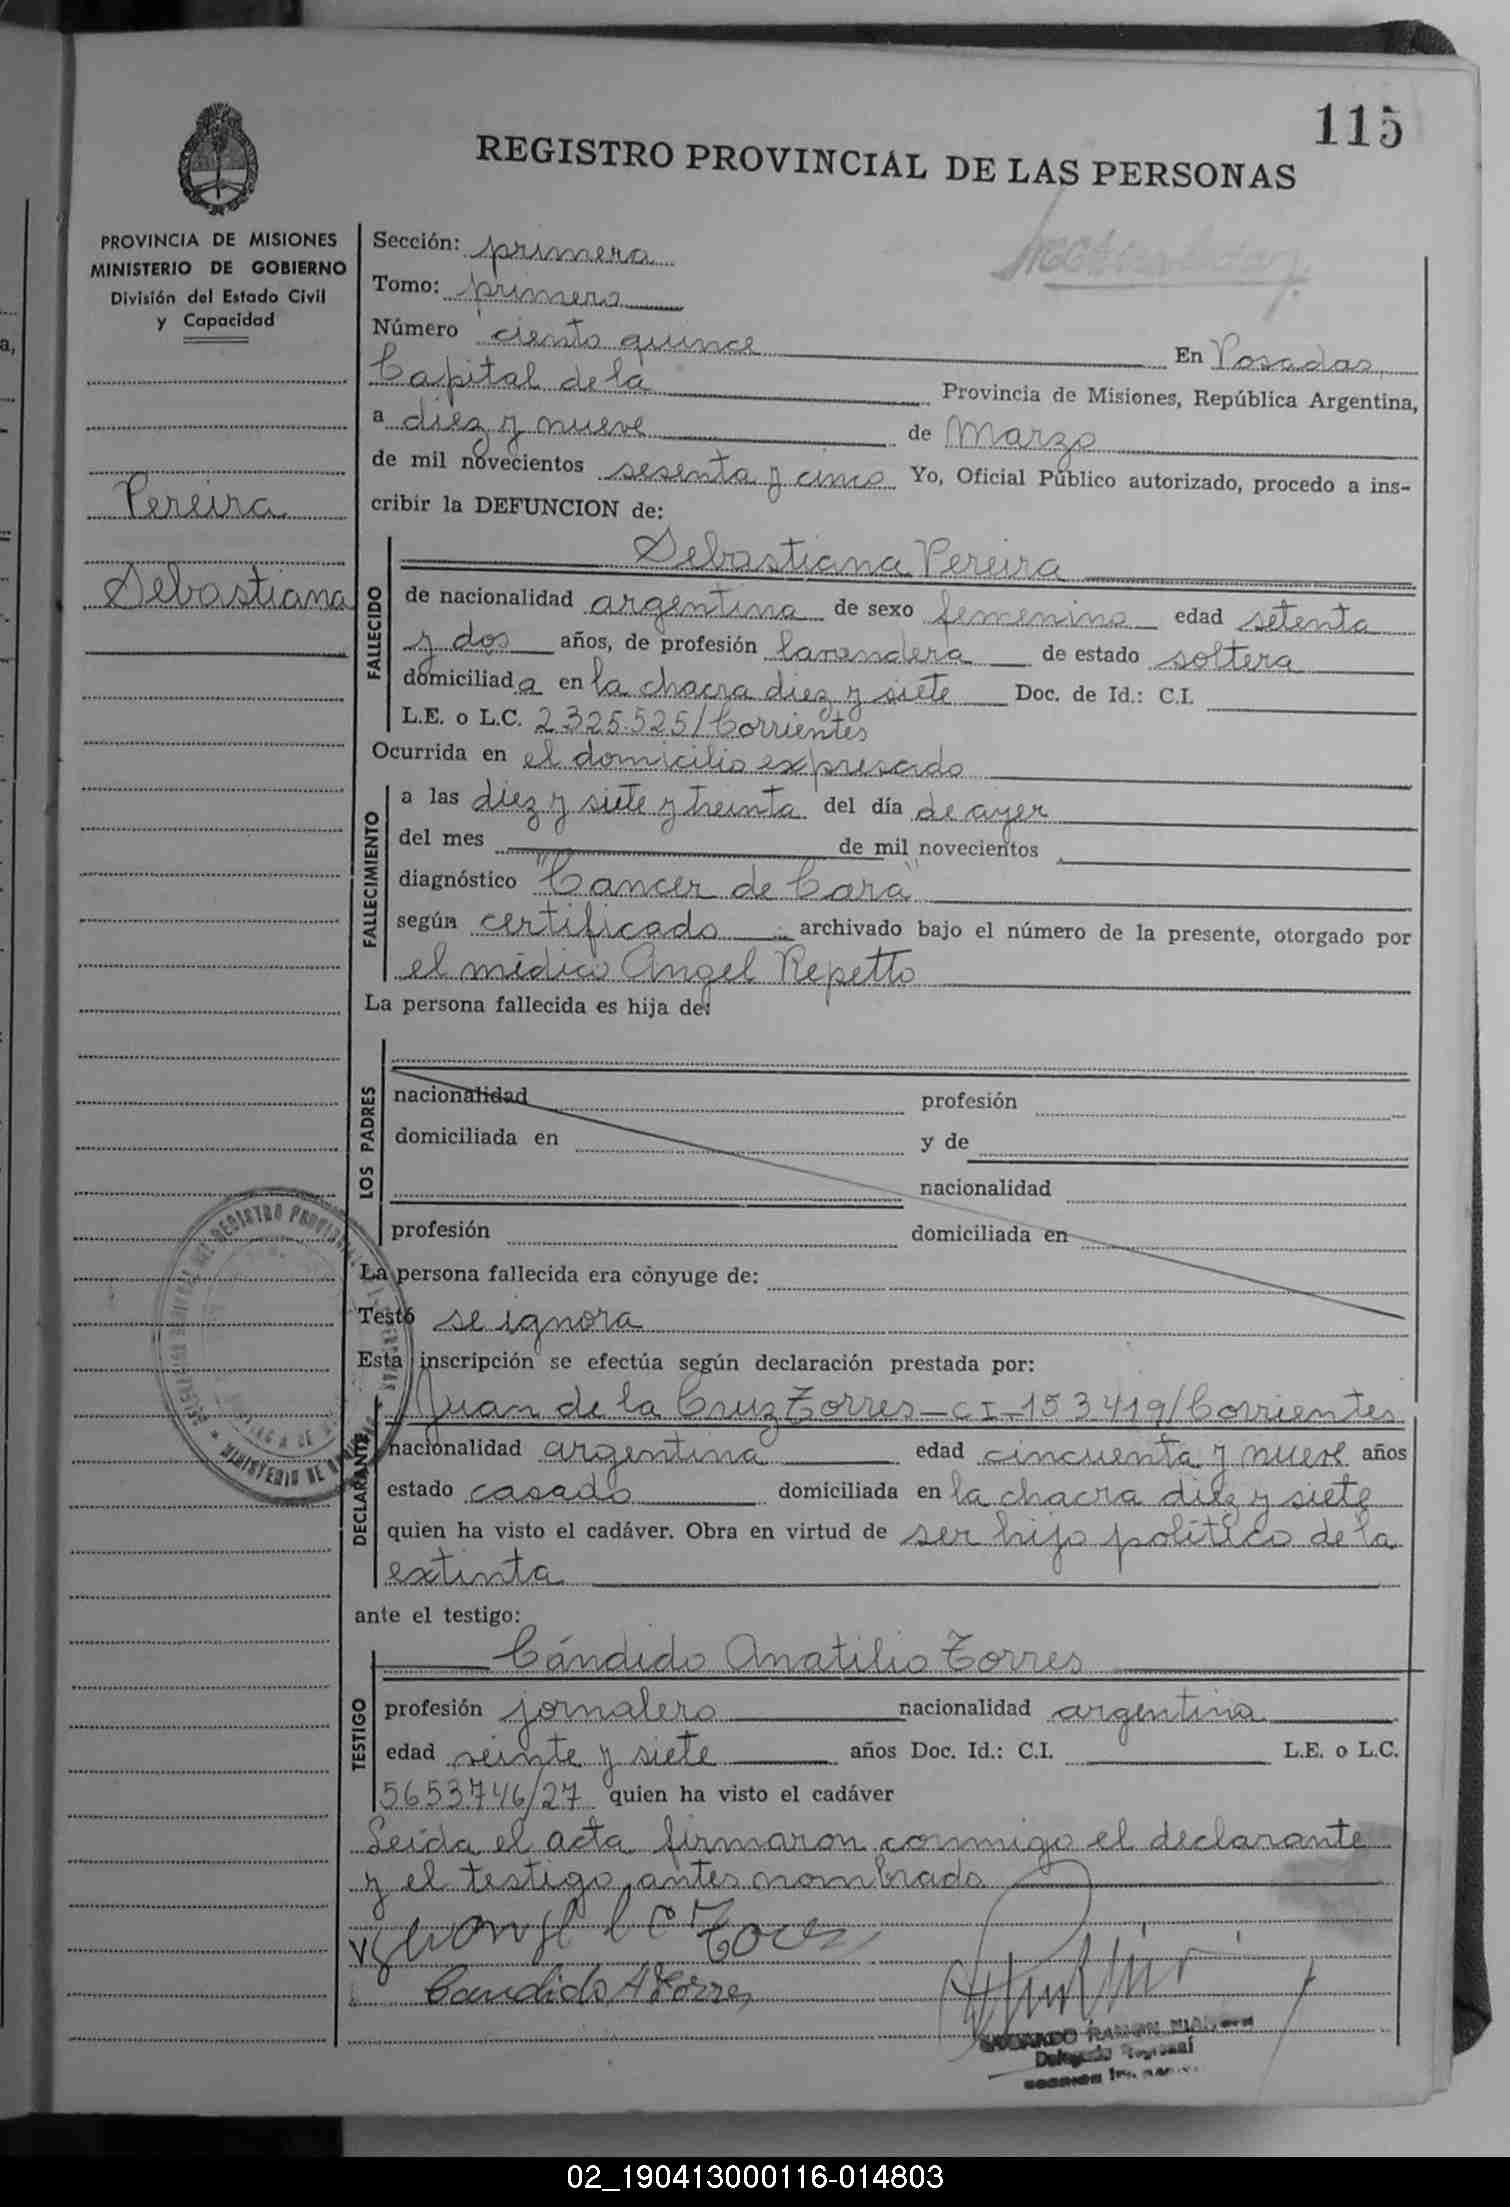 115
REGISTRO PROVINCIAL DE LAS PERSONAS
PROVINCIA DE MISIONES
MINISTERIO DE GOBIERNO
División del Estado Civil
y Capacidad
Pereira
Sebastiana
Sección: primera
Tomo: primero
Número ciento quince En Posadas,
Capital de la Provincia de Misiones, República Argentina,
a diez y nueve de Marzo
de mil novecientos sesenta y cinco Yo, Oficial Público autorizado, procedo a ins-
cribir la DEFUNCION de:
Sebastiana Pereira
FALLECIDO
de nacionalidad argentina de sexo femenino edad setenta
y dos años, de profesión lavandera de estado soltera
domiciliada en la chacra diez y siete Doc. de Id.: C.I.
L.E. o L.C. 2325.525/Corrientes
Ocurrida en el domicilio expresado
FALLECIMIENTO
a las diez y siete y treinta del día de ayer
del mes de mil novecientos
diagnóstico "Cancer de Cara"
según certificado archivado bajo el número de la presente, otorgado por
el médico Angel Repetto
La persona fallecida es hija de:
LOS PADRES
nacionalidad profesión
domiciliada en y de
nacionalidad
profesión domiciliada en
La persona fallecida era cónyuge de:
Testó se ignora
Esta inscripción se efectúa según declaración prestada por:
Juan de la Cruz Torres - C I - 153419/Corrientes
DECLARANTE
nacionalidad argentina edad cincuenta y nueve años
estado casado domiciliada en la chacra diez y siete
quien ha visto el cadáver. Obra en virtud de ser hijo político de la
extinta
ante el testigo:
Cándido Anatilio Torres
TESTIGO
profesión jornalero nacionalidad argentina
edad veinte y siete años Doc. Id.: C.I. L.E. o L.C.
5653746/27 quien ha visto el cadáver
Leída el acta firmaron conmigo el declarante
y el testigo antes nombrado
Candido A Torres
RAMON
Delegado
02_190413000116-014803